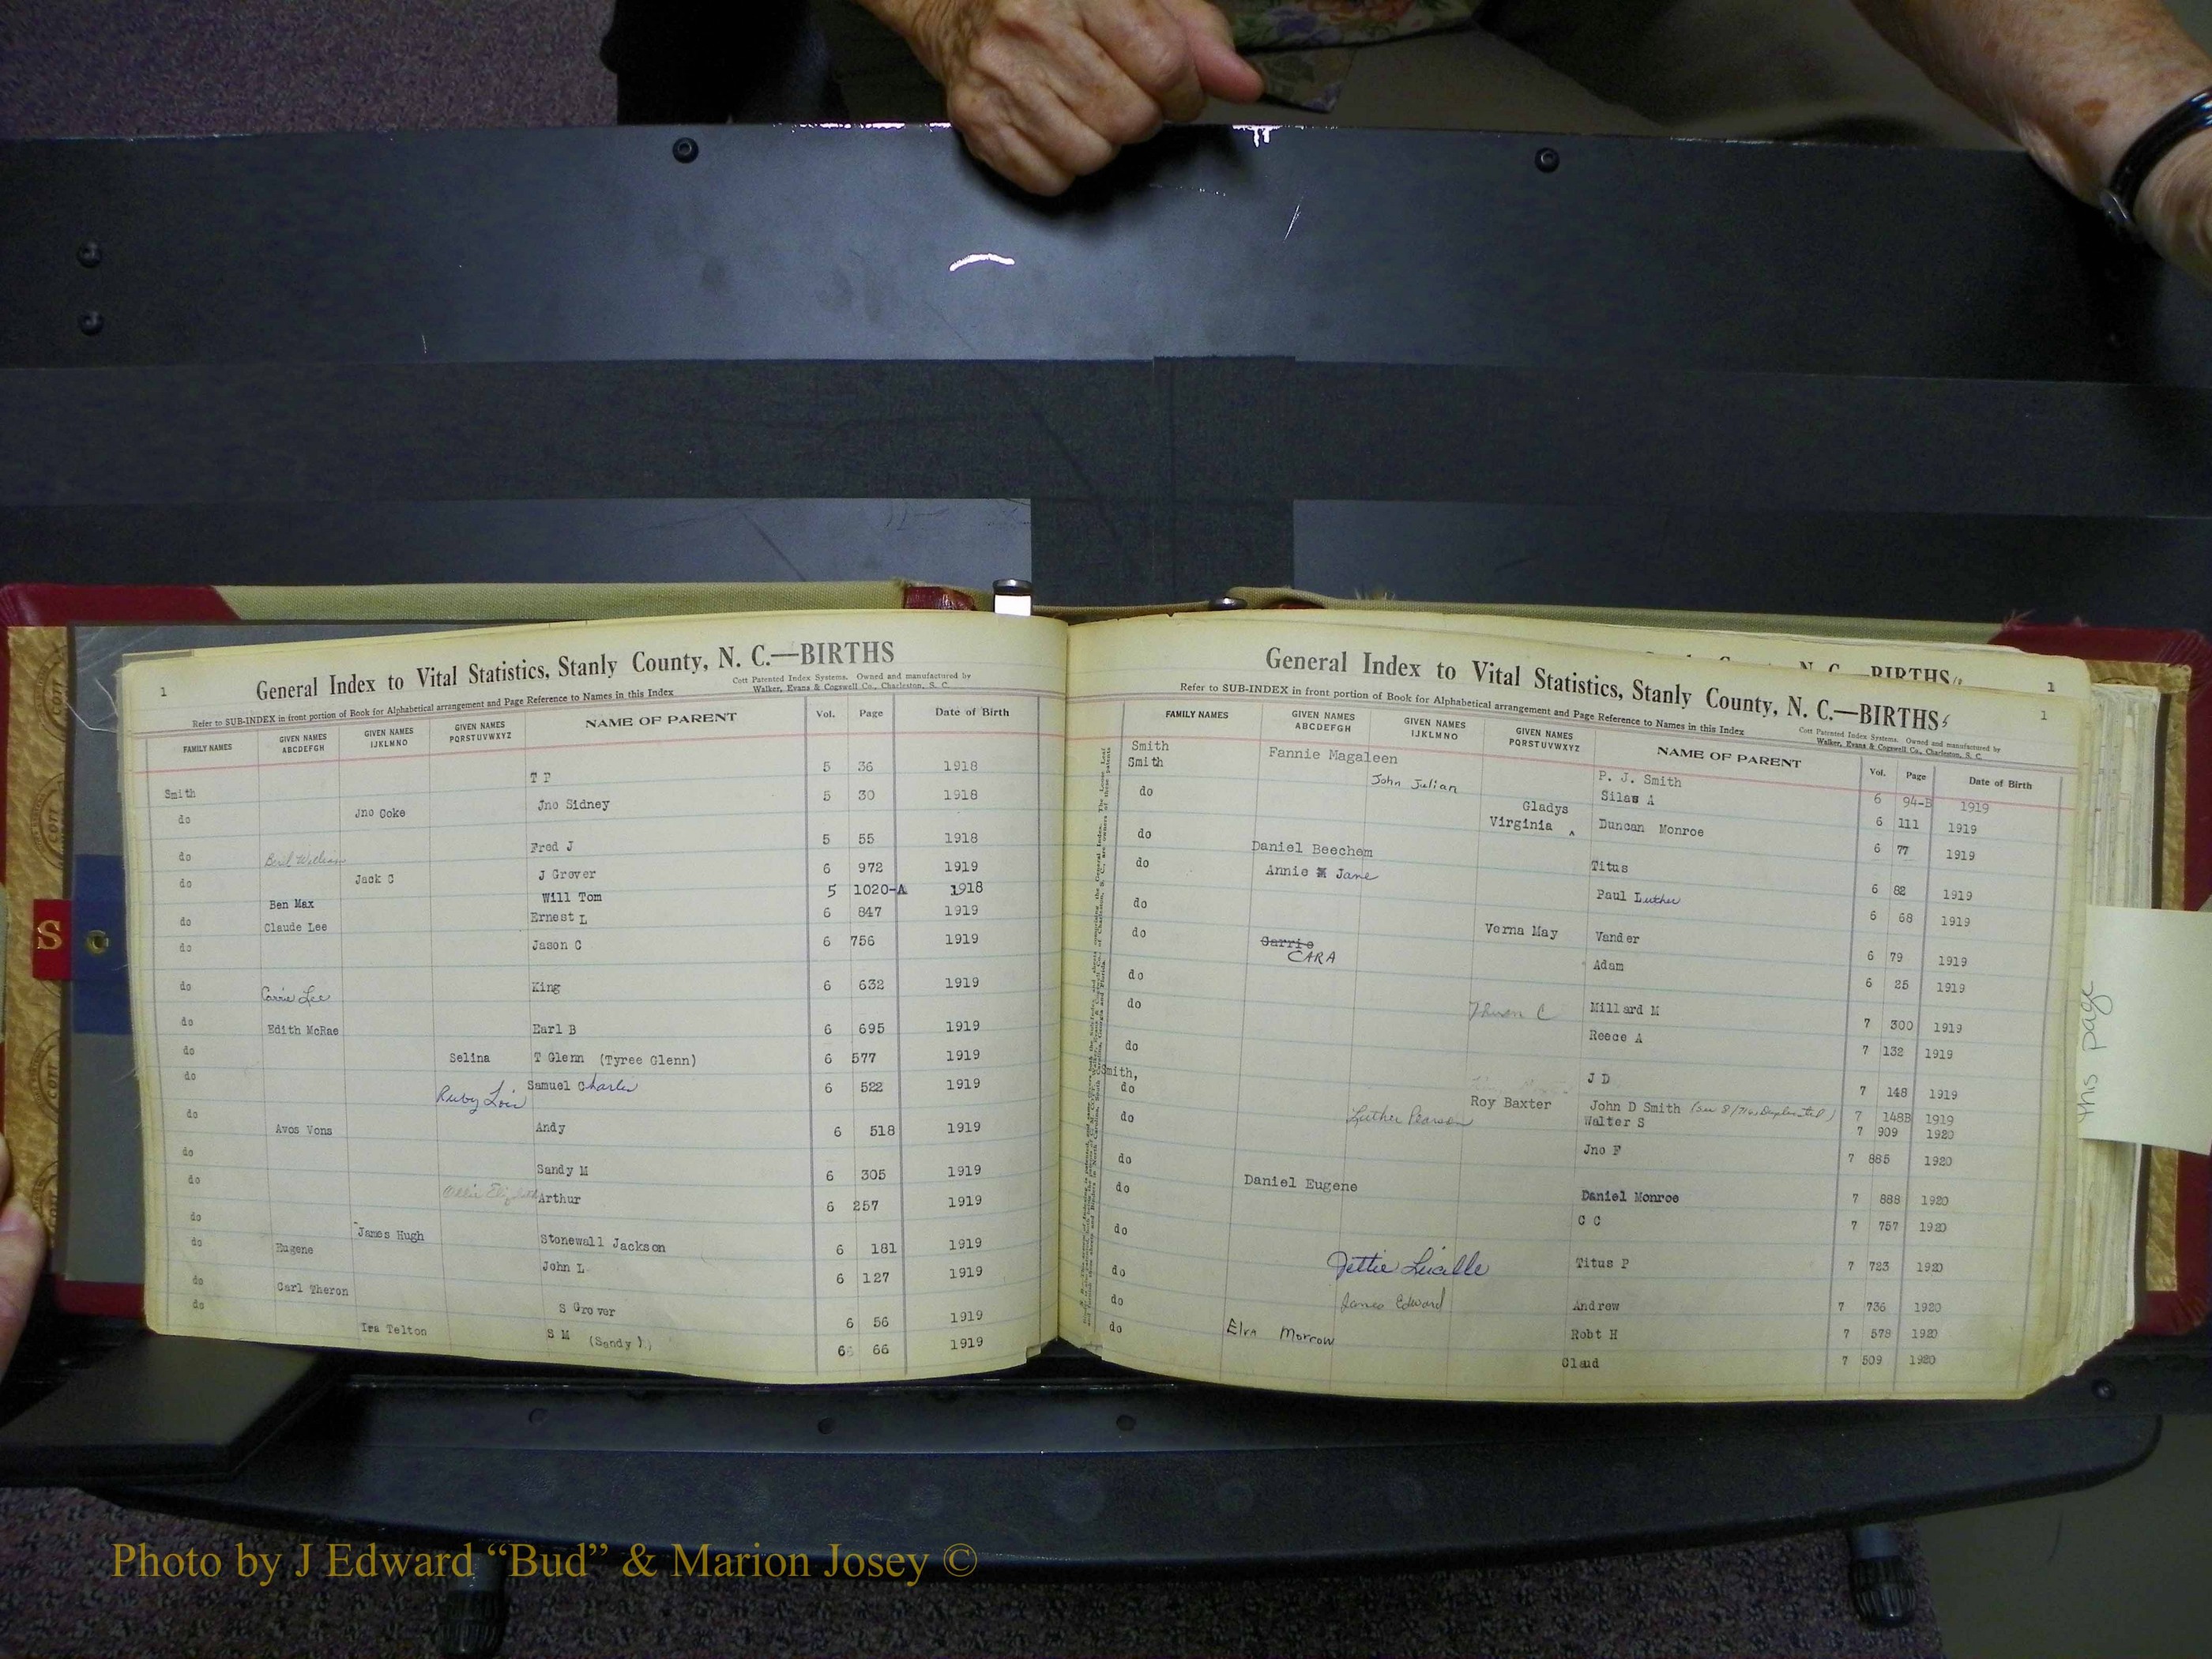 1
General Index to Vital Statistics, Stanly County, N. C.—BIRTHS
Refer to SUB-INDEX in front portion of Book for Alphabetical arrangement and Page Reference to Names in this Index
Cott Patented Index Systems. Owned and manufactured by
Walker, Evans & Cogswell Co., Charleston, S. C.
FAMILY NAMES GIVEN NAMES ABCDEFGH GIVEN NAMES IJKLMNO GIVEN NAMES PQRSTUVWXYZ NAME OF PARENT Vol. Page Date of Birth
Smith 5 36 1918
do Jno Coke Jno Sidney 5 30 1918
do William Fred J 5 55 1918
do Jack C J Grover 6 972 1919
Ben Max Will Tom 5 1020-A 1918
do Claude Lee Ernest L 6 847 1919
do Jason C 6 756 1919
do Carrie Lee King 6 632 1919
do Edith McRae Earl B 6 695 1919
do Selina T Glenn (Tyree Glenn) 6 577 1919
do Ruby Lois Samuel Charles 6 522 1919
do Avos Vons Andy 6 518 1919
do Sandy M 6 305 1919
do Arthur 6 257 1919
do James Hugh Stonewall Jackson 6 181 1919
do Eugene John L 6 127 1919
do Carl Theron S Grover 6 56 1919
do Ira Telton S M (Sandy) 6 66 1919
S
N. C.—BIRTHS
1
General Index to Vital Statistics, Stanly County, N. C.—BIRTHS
1
Refer to SUB-INDEX in front portion of Book for Alphabetical arrangement and Page Reference to Names in this Index
Cott Patented Index Systems. Owned and manufactured by
Walker, Evans & Cogswell Co., Charleston, S. C.
FAMILY NAMES GIVEN NAMES ABCDEFGH GIVEN NAMES IJKLMNO GIVEN NAMES PQRSTUVWXYZ NAME OF PARENT Vol. Page Date of Birth
Smith Fannie Magaleen P. J. Smith 6 94-B 1919
Smith John Julian Silas A 6 111 1919
do Gladys Virginia Duncan Monroe 6 77 1919
do Daniel Beechem Titus 6 82 1919
do Annie Jane Paul Luther 6 68 1919
do Verna May Vander 6 79 1919
do Carrie CARA Adam 6 25 1919
do Millard M 7 300 1919
do Reece A 7 132 1919
do J D 7 148 1919
Smith, Roy Baxter John D Smith 7 148B 1919
do Luther Pearson Walter S 7 909 1920
do Jno F 7 885 1920
do Daniel Eugene Daniel Monroe 7 888 1920
do C C 7 757 1920
do Jettie Lucille Titus P 7 723 1920
do James Edward Andrew 7 736 1920
do Robt H 7 578 1920
do Elva Morrow Claud 7 509 1920
this page
Photo by J Edward “Bud” & Marion Josey ©